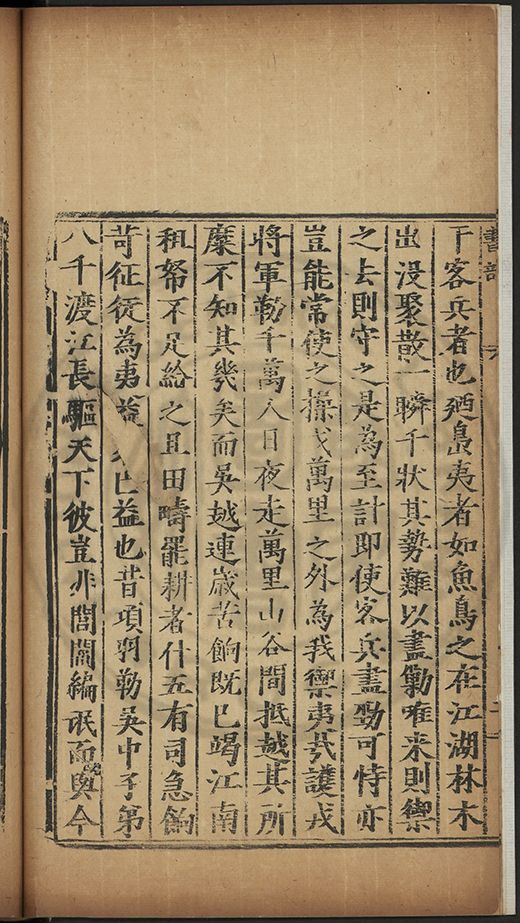 書部
于客兵者也廼島夷者如魚鳥之在江湖林木
出没聚散一瞬千狀其勢難以盡勦唯来則禦
之去則守之是為至計即使客兵盡勁可恃亦
豈能常使之操戈萬里之外為我禦夷哉護戎
將軍勒千萬人日夜走萬里山谷間抵越其所
糜不知其幾矣而吳越連歲苦餉既已竭江南
租帑不足給之且田疇罷耕者什五有司急餉
苛征從為夷益已益也昔項羽勒吳中子第
八千渡江長驅天下彼豈非閭閻編氓而與今